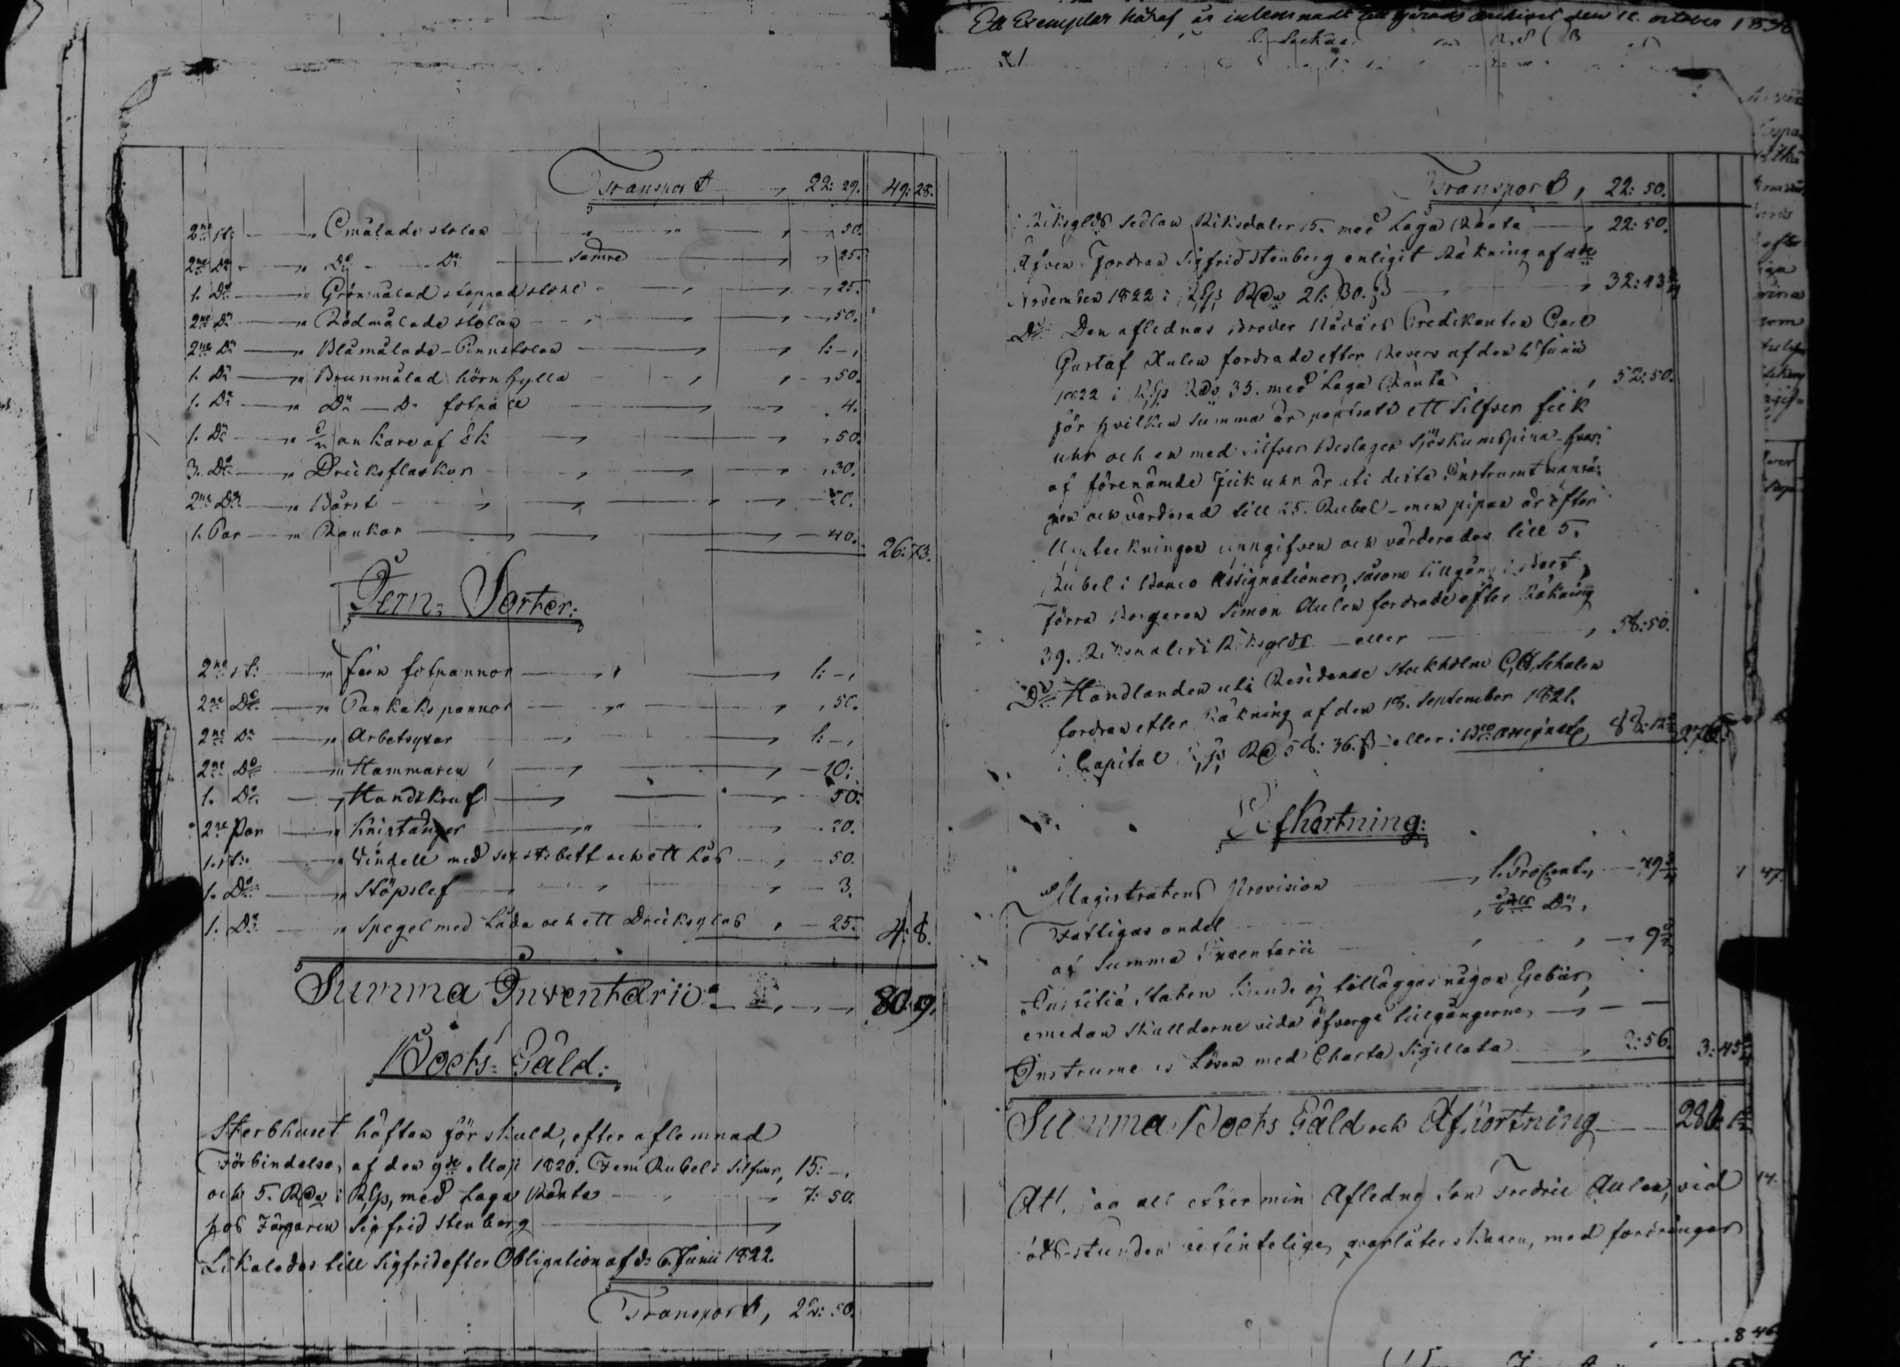 Ett Exemplar häraf är inlemnadt den 12. october
Transport 22: 29. 49: 28.
2ne st: Omålade stolar 50.
2ne Do Do Do sämre 25.
1. Do Grönmålad stoppad stohl 25.
2ne Do Rödmålade stolar 50.
2ne Do Blåmålade Pinnstolar 1: –
1. Do Brunmålad hörnhylla 50.
1. Do Do Do fotpall 4.
1. Do ankare af Ek 50.
3. Do Dricksflaskor 30.
2ne Do Börst 20.
1. Par Bankar 40. 26: 73.
Jern: Sorter:
2ne st: Jern fotpannor 1: –
2ne Do Pankakspannor 50.
2ne Do Arbetsyxor 1: –
2ne Do Hammaren 10:
1. Do Handskruf 50:
2ne Par Kniptänger 20.
1. st: Vindell med sex st: bett och ett lås 50.
1. Do Stöpslef 3.
1. Do Spegel med Låda och ett Dricksglas 25. 4: 8.
Summa Inventarii: 80: 9.
Bocks: Gäld:
Sterbhuset häftar för skuld, efter aflemnad
Förbindelse, af den 9de Maji 1820. Fem Rubel Silfver, 15: –
och 5. Rdr i Rgs, med Laga Ränta 7: 50.
hos Färgaren Sigfrid Stenberg
Likaledes till Sigfrid efter Obligation af d: 6. Junii 1822.
Transport, 22: 50.
Transport, 22: 50.
i Riksgälds Sedlar Riksdaler 15. med Laga Ränta 22: 50.
Äfven Fordrar Sigfrid Stenberg enligit Räkning af
November 1822 i Rgs Rdr 21: 30. 32: 43
Do Den aflednas Broder Nådårs Predikanten Carl
Gustaf Aulen fordrade efter Revers af den Junii
1822 i Rgs Rdr 35. med Laga Ränta 52: 50.
för hvilken Summa är pantsatt ett Silfver fick
uhr och en med silfver Beslagen Sjöskums pipa
af förenämde fick uhr är uti detta Instrument
och värderad till 25. Rubel – men pipan är efter
Upteckningen inngifven och värderades till 5.
Rubel i Banco Assignationer, såsom tillgång i
Förra Borgaren Simon Aulen fordrade efter Räkning
39. Riksdaler i Riksgälds – eller 58: 50.
Do Handlanden uti Residence Stockholm C. A. Schalen
fordrar efter Räkning af den 18. September 1821.
i Capital Rgs Rd 58: 36. eller i 88: 12
Afkortning:
Magistratens Provision 1. Procent 79
Fattigas andel Do
af Summa Inventarii 9
Staten kunde ej tilläggas någon Gebür,
emedan skulderne vida öfvergå tillgångerne, – –
Instrume ts Lösen med Charta Sigillata 2: 56. 3: 45
Summa Bocks Gäld och Afkortning 280:
Att, all efter min Afledne Son Fredric Aulen, vid
död-stunden qvarlåtenskapen, med fordringar